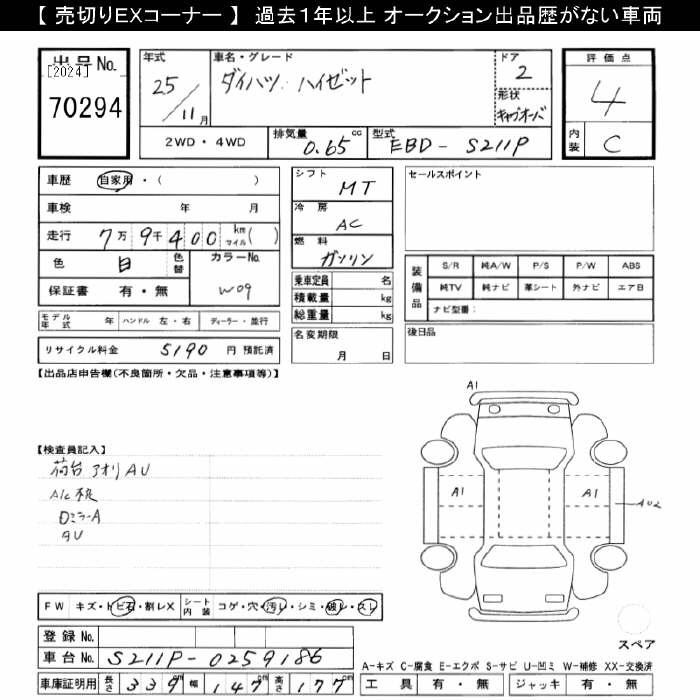 【 売切りEXコーナー 】 過去1年以上 オークション出品歴がない車両
出品No.
[2024]
70294
年式
25/11月
車名・グレード
ダイハツ ハイゼット
ドア
2
形状
キャブオーバ
評価点
4
内装
C
2WD・4WD
排気量 0.65 cc
型式 EBD-S211P
車歴 自家用・( )
車検 年 月
走行 7万9千400 km マイル( )
色 白 色替
カラーNo. W09
保証書 有・無
モデル年式 年 ハンドル 左・右 ディーラー・並行
リサイクル料金 5190 円 預託済
シフト MT
冷房 AC
燃料 ガソリン
乗車定員 名
積載量 kg
総重量 kg
名変期限
月 日
セールスポイント
装備品
S/R 純A/W P/S P/W ABS
純TV 純ナビ 革シート 外ナビ エアB
ナビ型番:
後日品
【出品店申告欄(不良箇所・欠品・注意事項等)】
【検査員記入】
荷台 アオリ AU
A/c
ロミラーA
AU
A1
A1
A1
AU2
FW キズ・トビ石・割レX
シート内装 コゲ・穴・汚レ・シミ・破レ・スレ
登録No.
車台No. S211P-0259186
車庫証明用 長さ 339cm 幅 147cm 高さ 177cm
スペア
A-キズ C-腐食 E-エクボ S-サビ U-凹ミ W-補修 XX-交換済
工具 有・無 ジャッキ 有・無